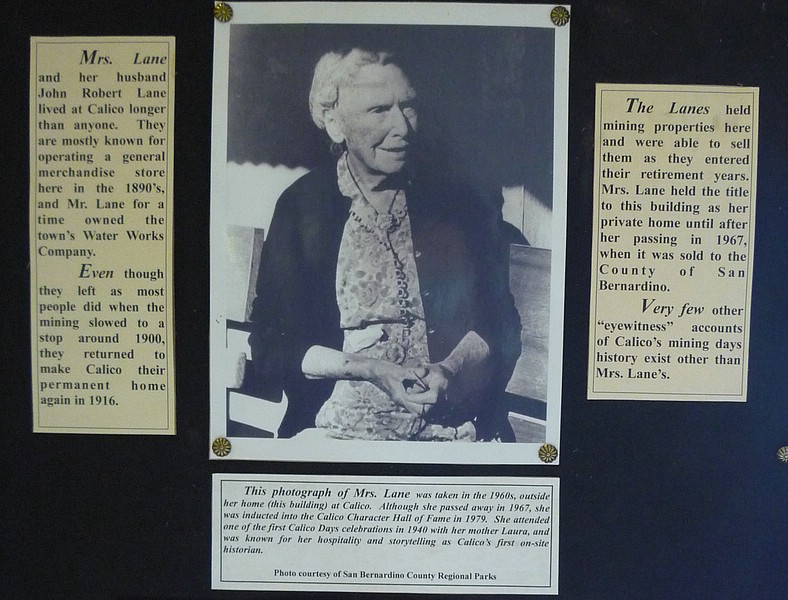 Mrs. Lane
and her husband
John Robert Lane
lived at Calico longer
than anyone. They
are mostly known for
operating a general
merchandise store
here in the 1890's,
and Mr. Lane for a
time owned the
town's Water Works
Company.
Even though
they left as most
people did when the
mining slowed to a
stop around 1900,
they returned to
make Calico their
permanent home
again in 1916.
The Lanes held
mining properties here
and were able to sell
them as they entered
their retirement years.
Mrs. Lane held the title
to this building as her
private home until after
her passing in 1967,
when it was sold to the
County of San
Bernardino.
Very few other
"eyewitness" accounts
of Calico's mining days
history exist other than
Mrs. Lane's.
This photograph of Mrs. Lane was taken in the 1960s, outside
her home (this building) at Calico. Although she passed away in 1967, she
was inducted into the Calico Character Hall of Fame in 1979. She attended
one of the first Calico Days celebrations in 1940 with her mother Laura, and
was known for her hospitality and storytelling as Calico's first on-site
historian.
Photo courtesy of San Bernardino County Regional Parks